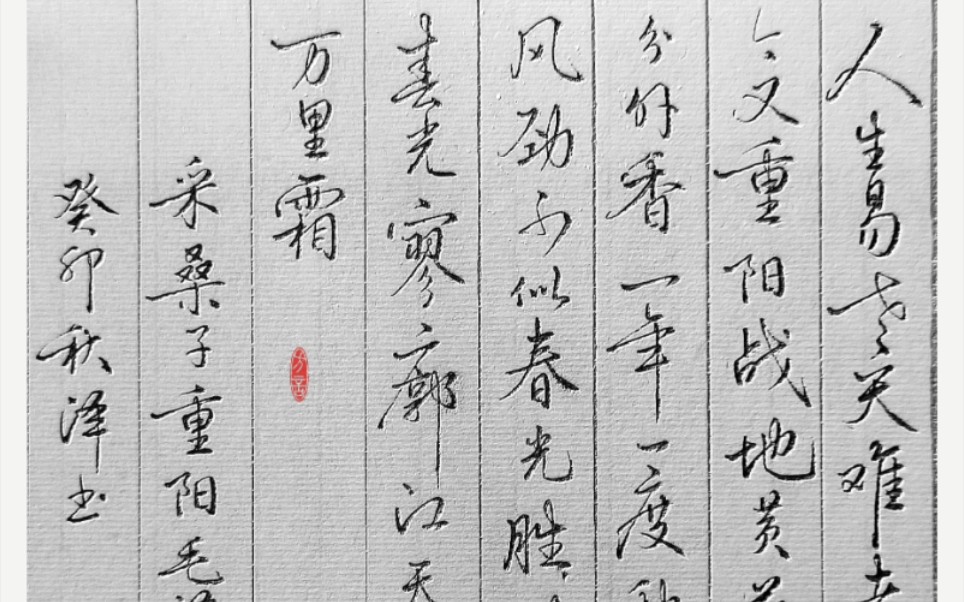 人生易老天难
今又重阳战地黄
分外香一年一度
风劲不似春光胜
春光寥廓江天
万里霜
采桑子重阳毛
癸卯秋泽书